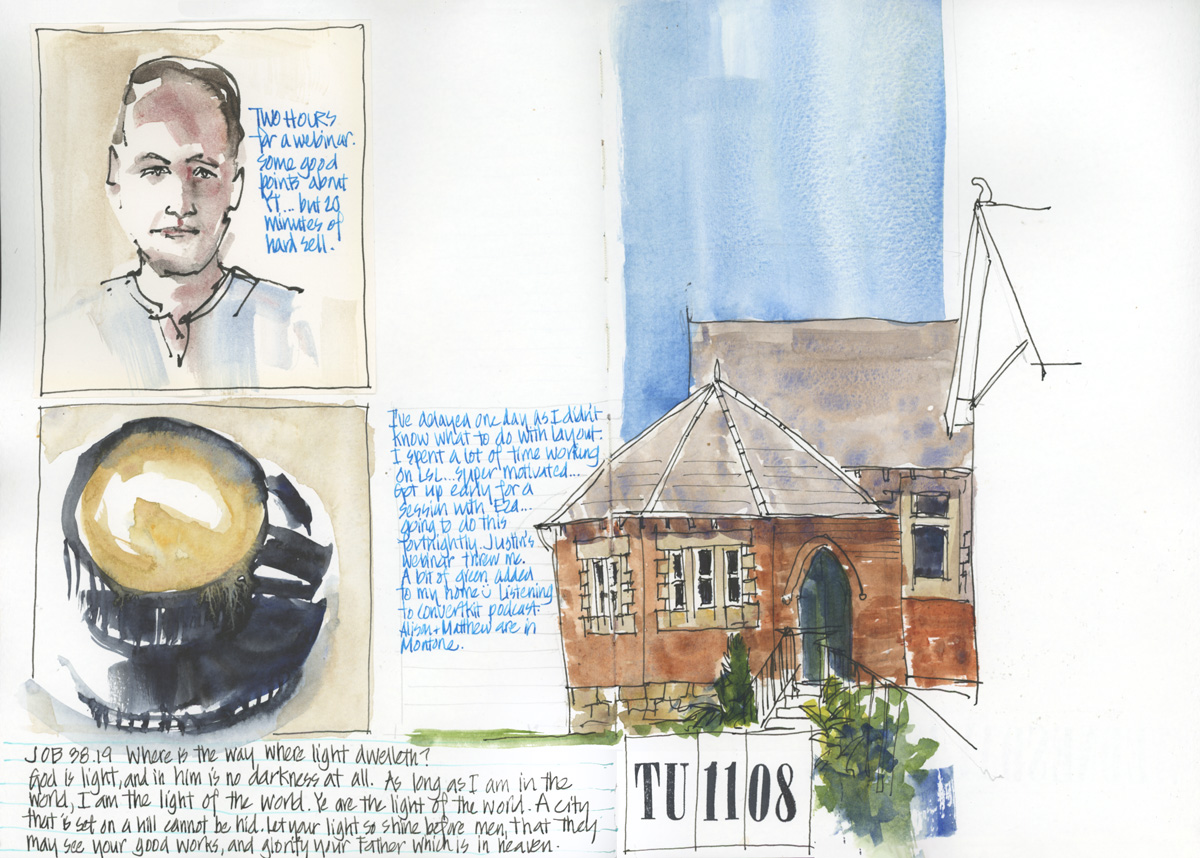 TWO HOURS
for a webinar.
Some good
points about
YT... but 20
minutes of
hard sell.
I've delayed one day as I didn't
know what to do with layout.
I spent a lot of time working
on LSL... super motivated...
Got up early for a
session with Eza...
going to do this
fortnightly. Justin's
webinar threw me.
A bit of green added
to my home Listening
to convertkit podcast.
Alison + Matthew are in
Montone.
JOB 38.19 Where is the way where light dwelleth?
God is light, and in him is no darkness at all. As long as I am in the
world, I am the light of the world. Ye are the light of the world. A city
that is set on a hill cannot be hid. Let your light so shine before men, that they
may see your good works, and glorify your Father which is in heaven.
TU 11 08